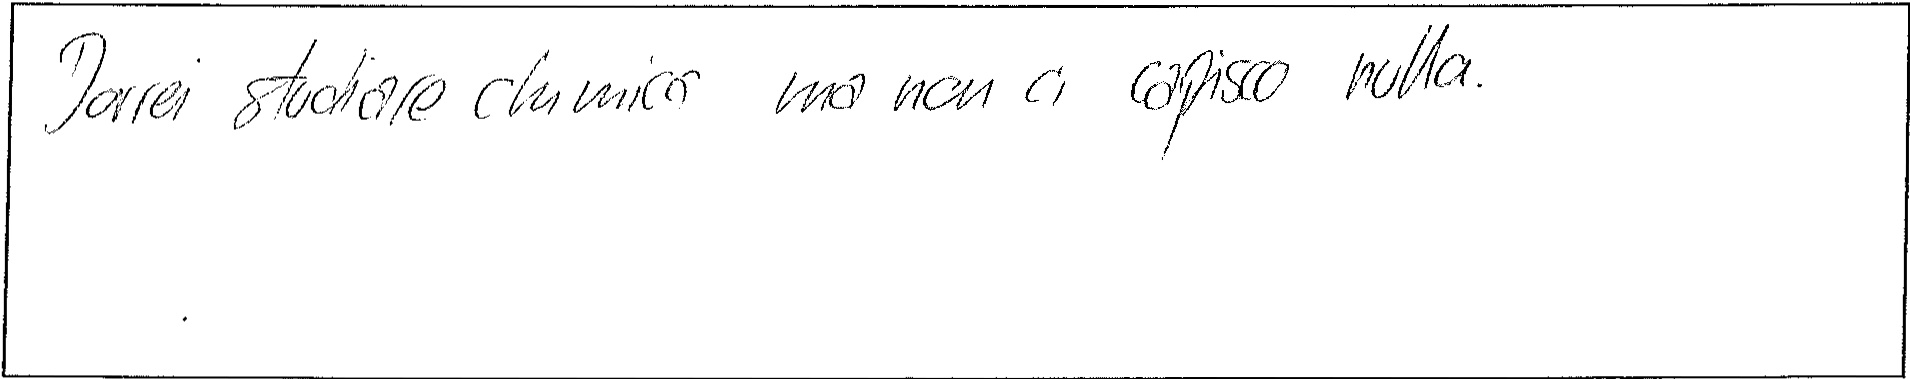 Dovrei studiare chimica ma non ci capisco nulla.